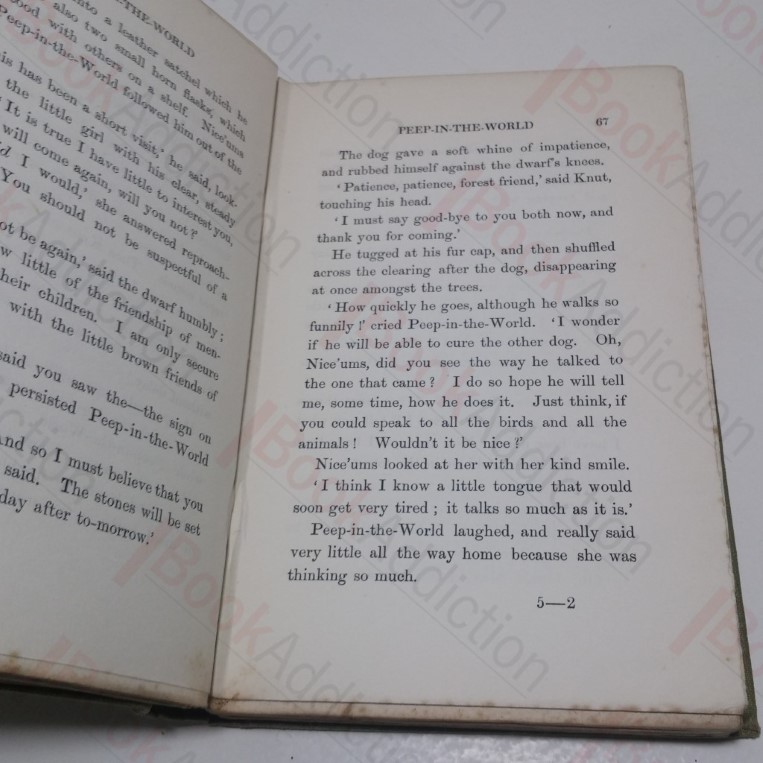 -THE-WORLD
into a leather satchel which he
also two small horn flasks, which
ood with others on a shelf. Nice'ums
Peep-in-the-World followed him out of the
is has been a short visit,' he said, look-
the little girl with his clear, steady
It is true I have little to interest you,
will come again, will you not?'
I would,' she answered reproach-
You should not be suspectful of a
ot be again,' said the dwarf humbly;
w little of the friendship of men-
heir children. I am only secure
with the little brown friends of
said you saw the—the sign on
persisted Peep-in-the-World
And so I must believe that you
said. The stones will be set
day after to-morrow.'
PEEP-IN-THE-WORLD 67
The dog gave a soft whine of impatience,
and rubbed himself against the dwarf's knees.
'Patience, patience, forest friend,' said Knut,
touching his head.
'I must say good-bye to you both now, and
thank you for coming.'
He tugged at his fur cap, and then shuffled
across the clearing after the dog, disappearing
at once amongst the trees.
'How quickly he goes, although he walks so
funnily!' cried Peep-in-the-World. 'I wonder
if he will be able to cure the other dog. Oh,
Nice'ums, did you see the way he talked to
the one that came? I do so hope he will tell
me, some time, how he does it. Just think, if
you could speak to all the birds and all the
animals! Wouldn't it be nice?'
Nice'ums looked at her with her kind smile.
'I think I know a little tongue that would
soon get very tired; it talks so much as it is.'
Peep-in-the-World laughed, and really said
very little all the way home because she was
thinking so much.
5—2
BookAddiction